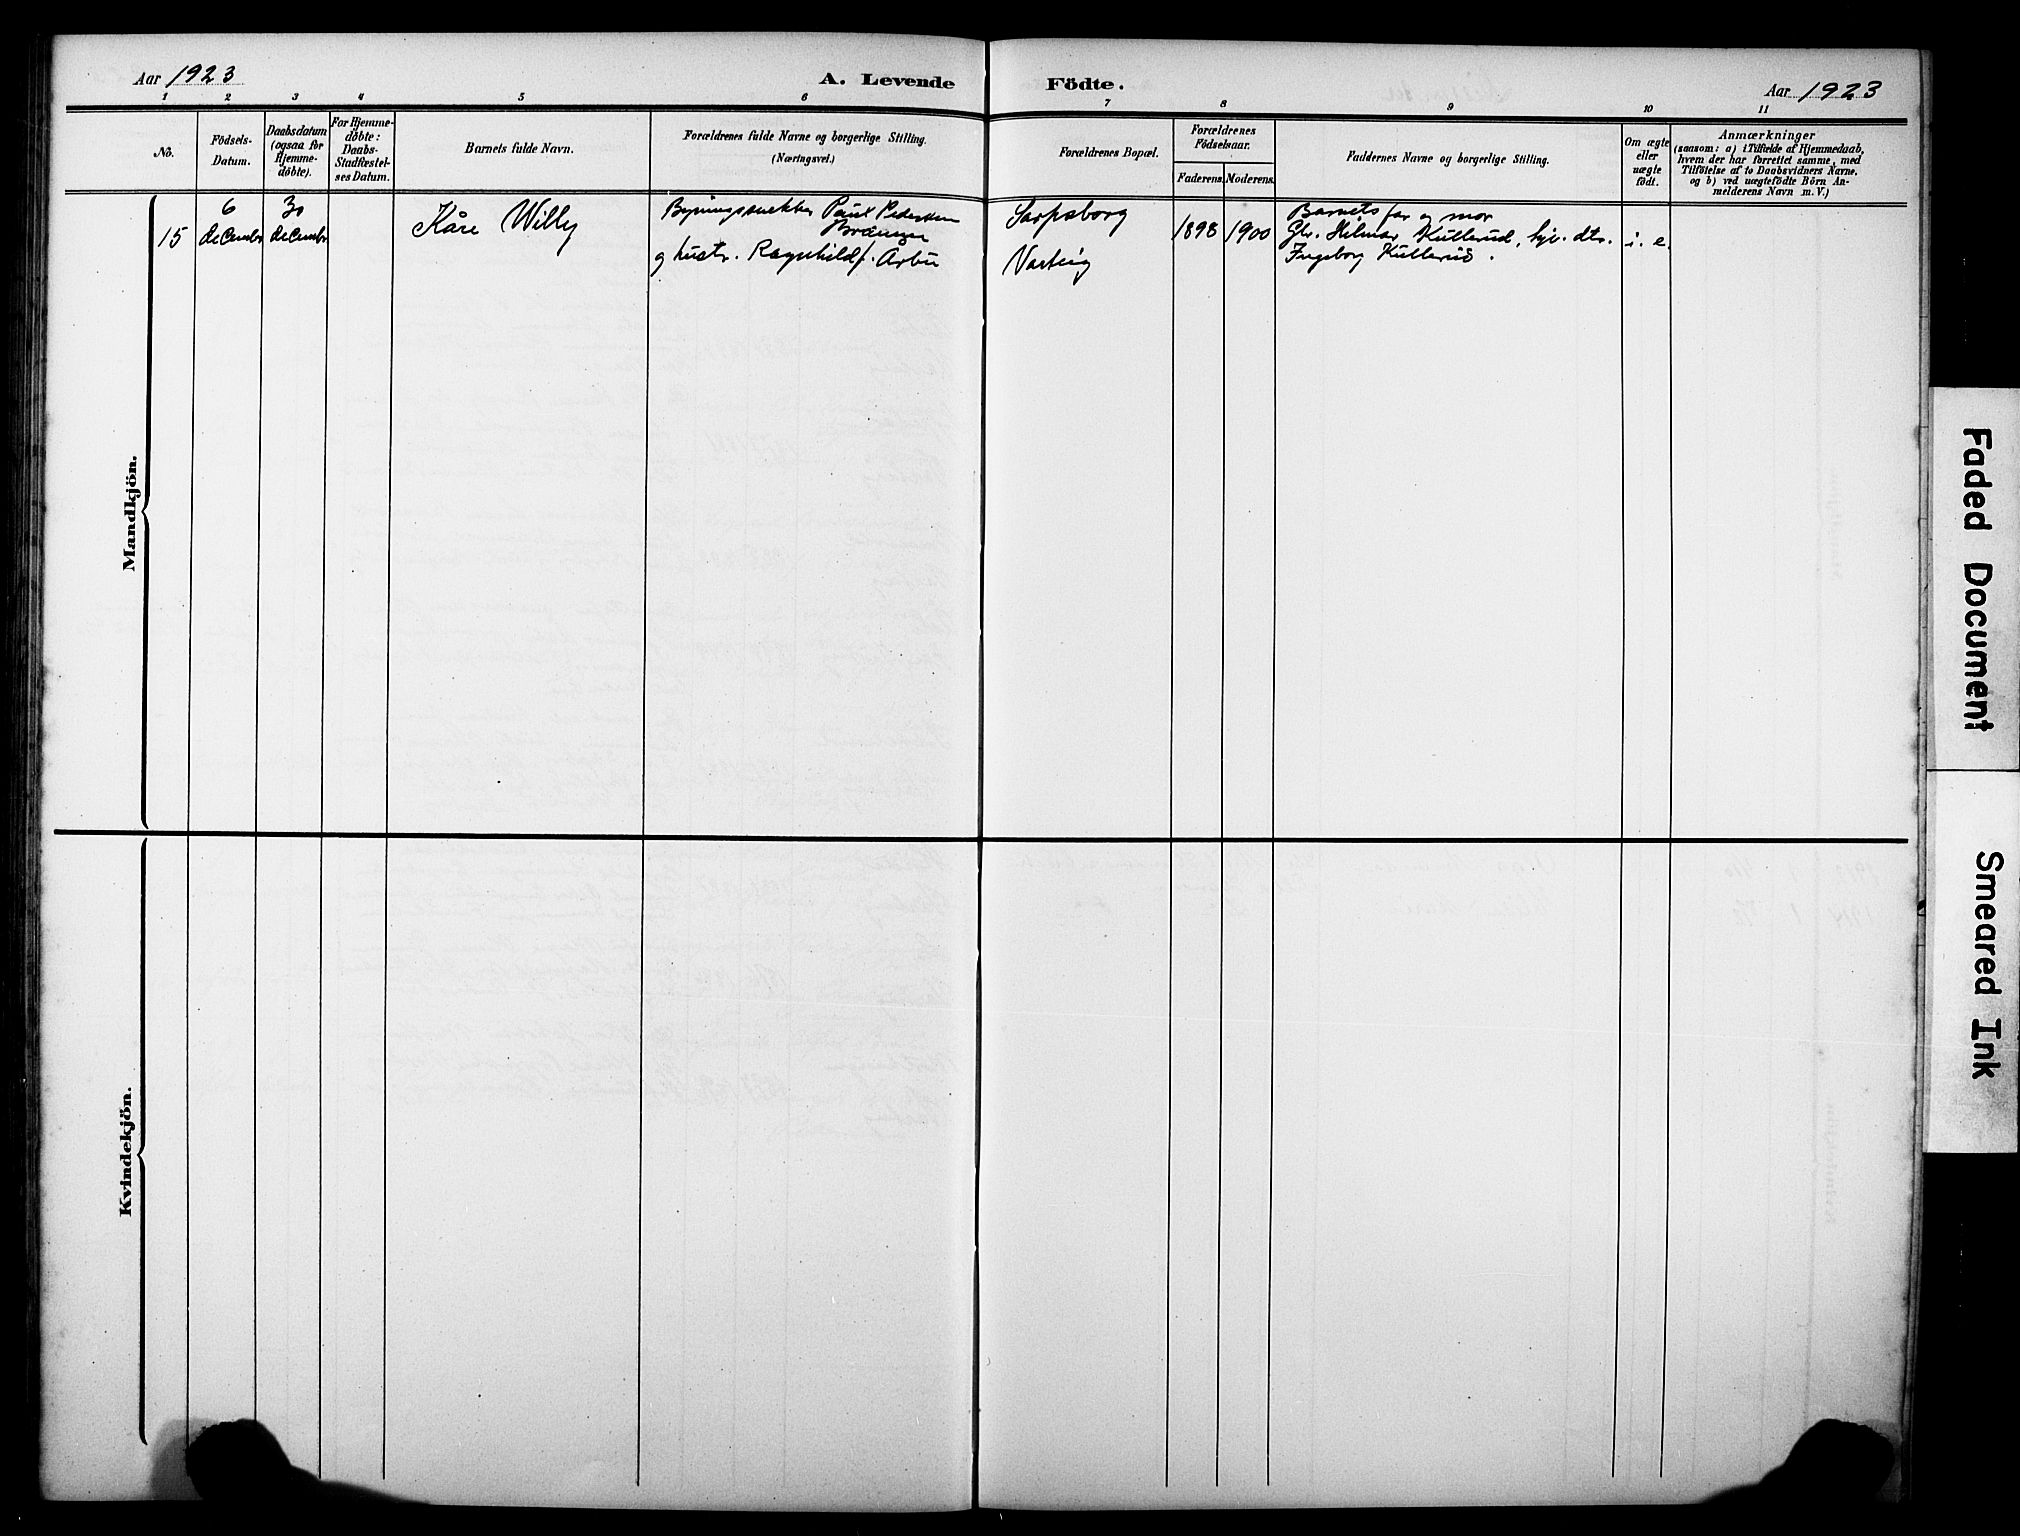 Aar 1923
A. Levende Födte.
Aar 1923
1 2 3 4 5 6 7 8 9 10 11
No.
Födsels-
Datum.
Daabsdatum
(ogsaa for
Hjemme-
döbte).
For Hjemme-
döbte:
Daabs-
Stadfæstel-
ses Datum.
Barnets fulde Navn.
Forældrenes fulde Navne og borgerlige Stilling.
(Næringsvei.)
Forældrenes Bopæl.
Forældrenes
Födselsaar.
Faderens. Moderens.
Faddernes Navne og borgerlige Stilling.
Om ægte
eller
uægte
födt.
Anmærkninger
(saasom: a) i Tilfælde af Hjemmedaab,
hvem der har forrettet samme, med
Tilföielse af to Daabsvidners Navne,
og b) ved uægtefödte Börn An-
melderens Navn m. V.)
Mandkjön.
15
6
december
30
december
Kåre Willy
Paul Pedersen
og hustr. Ragnhild f. Årbu
Sarpsborg
Varteig
1898 1900
Barnets far og mor
Gbr. Hilmar Kullerud, hjv. dtr.
Ingeborg Kullerud.
i. e.
Kvindekjön.
Faded Document
Smeared Ink